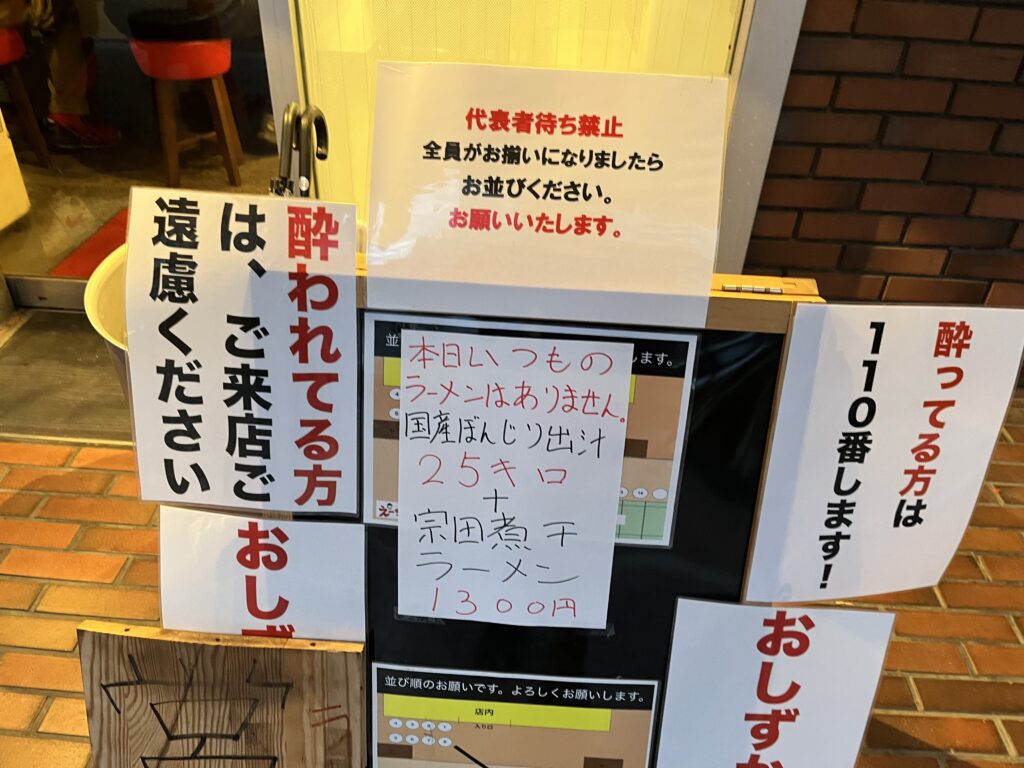 代表者待ち禁止
全員がお揃いになりましたら
お並びください。
お願いいたします。
酔われてる方
は、ご来店ご
遠慮ください
本日いつもの
ラーメンはありません。
国産ぼんじり出汁
25キロ
+
宗田煮干
ラーメン
1300円
並
します。
酔ってる方は
110番します!
おしず
おしずか
並び順のお願いです。よろしくお願いします。
店内
入り口
ラ